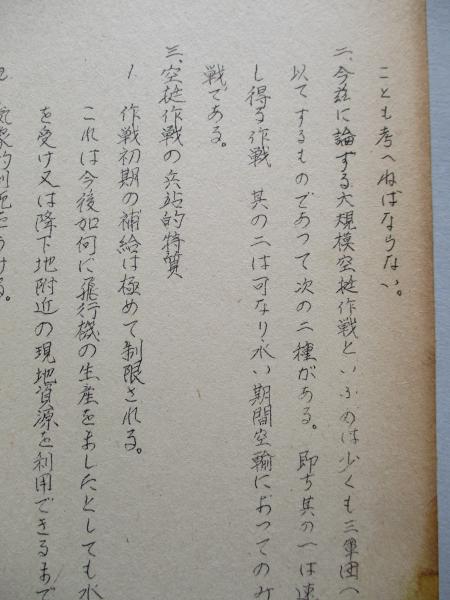 ことも考へねばならない。
二、今茲に論ずる大規模空挺作戦といふのは少くも三軍団
以てするものであつて次の二種がある。 即ち其の一は速
し得る作戦 其の二は可なり永い期間空輸によつてのみ
戦である。
三、空挺作戦の兵站的特質
1. 作戦初期の補給は極めて制限される。
これは今後如何に飛行機の生産をましたとしても水
を受け又は降下地附近の現地資源を利用できるまで
2. 気象的制魣をうける。